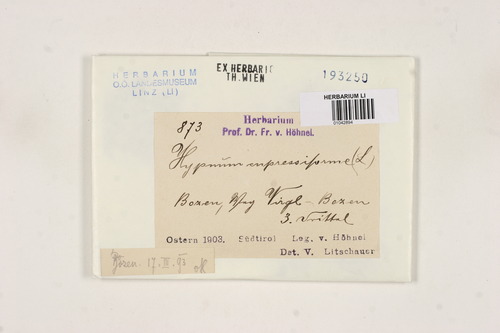 HERBARIUM
O.Ö. LANDESMUSEUM
LINZ (LI)
EX HERBARIO
TH. WIEN
193250
HERBARIUM LI
Herbarium
Prof. Dr. Fr. v. Höhnel.
873
Hypnum cupressiforme (L.)
Bozen, Weg Virgl - Bozen
3. Drittel
Ostern 1903. Südtirol Leg. v. Höhnel
Det. V. Litschauer
Bozen. 17. III. 93